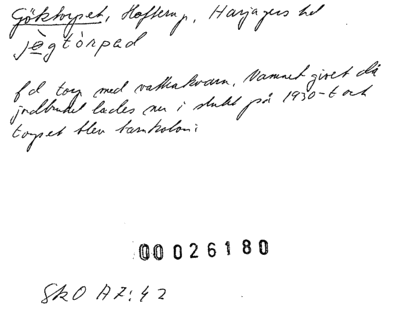 Göktorpet, Hofterup, Harjagers hd
jøgtòrpad
fd torp med vattukvarn. Namnet givet då
jordbruket lades ner i slutet på 1930-t och
torpet blev barnkoloni
00026180
SkO AZ:42